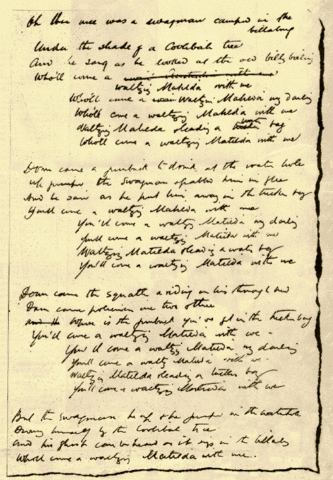 Oh there once was a swagman camped in the
billabong
Under the shade of a Coolibah tree
And he sang as he looked at the old billy boiling
Who'll come a
waltzing Matilda with me
Who'll come a waltzing Matilda my darling
Who'll come a waltzing Matilda with me
Waltzing Matilda leading a bag
Who'll come a waltzing Matilda with me
Down came a jumbuck to drink at the water hole
Up jumped the Swagman grabbed him in glee
And he said as he put him away in the tucker bag
You'll come a waltzing Matilda with me
You'll come a waltzing Matilda my darling
You'll come a waltzing Matilda with me
Waltzing Matilda leading a water bag
You'll come a waltzing Matilda with me
Down came the Squatter a riding on his thoroughbred
Down came policemen one two three
Where is the jumbuck you've got in the tucker bag
You'll come a waltzing Matilda with me
You'll come a waltzing Matilda my darling
You'll come a waltzing Matilda with me
Waltzing Matilda leading a tucker bag
You'll come a waltzing Matilda with me
But the Swagman he up and he jumped in the waterhole
Drowning himself by the Coolibah tree
And his ghost can be heard as it sings in the billabong
Who'll come a waltzing Matilda with me.